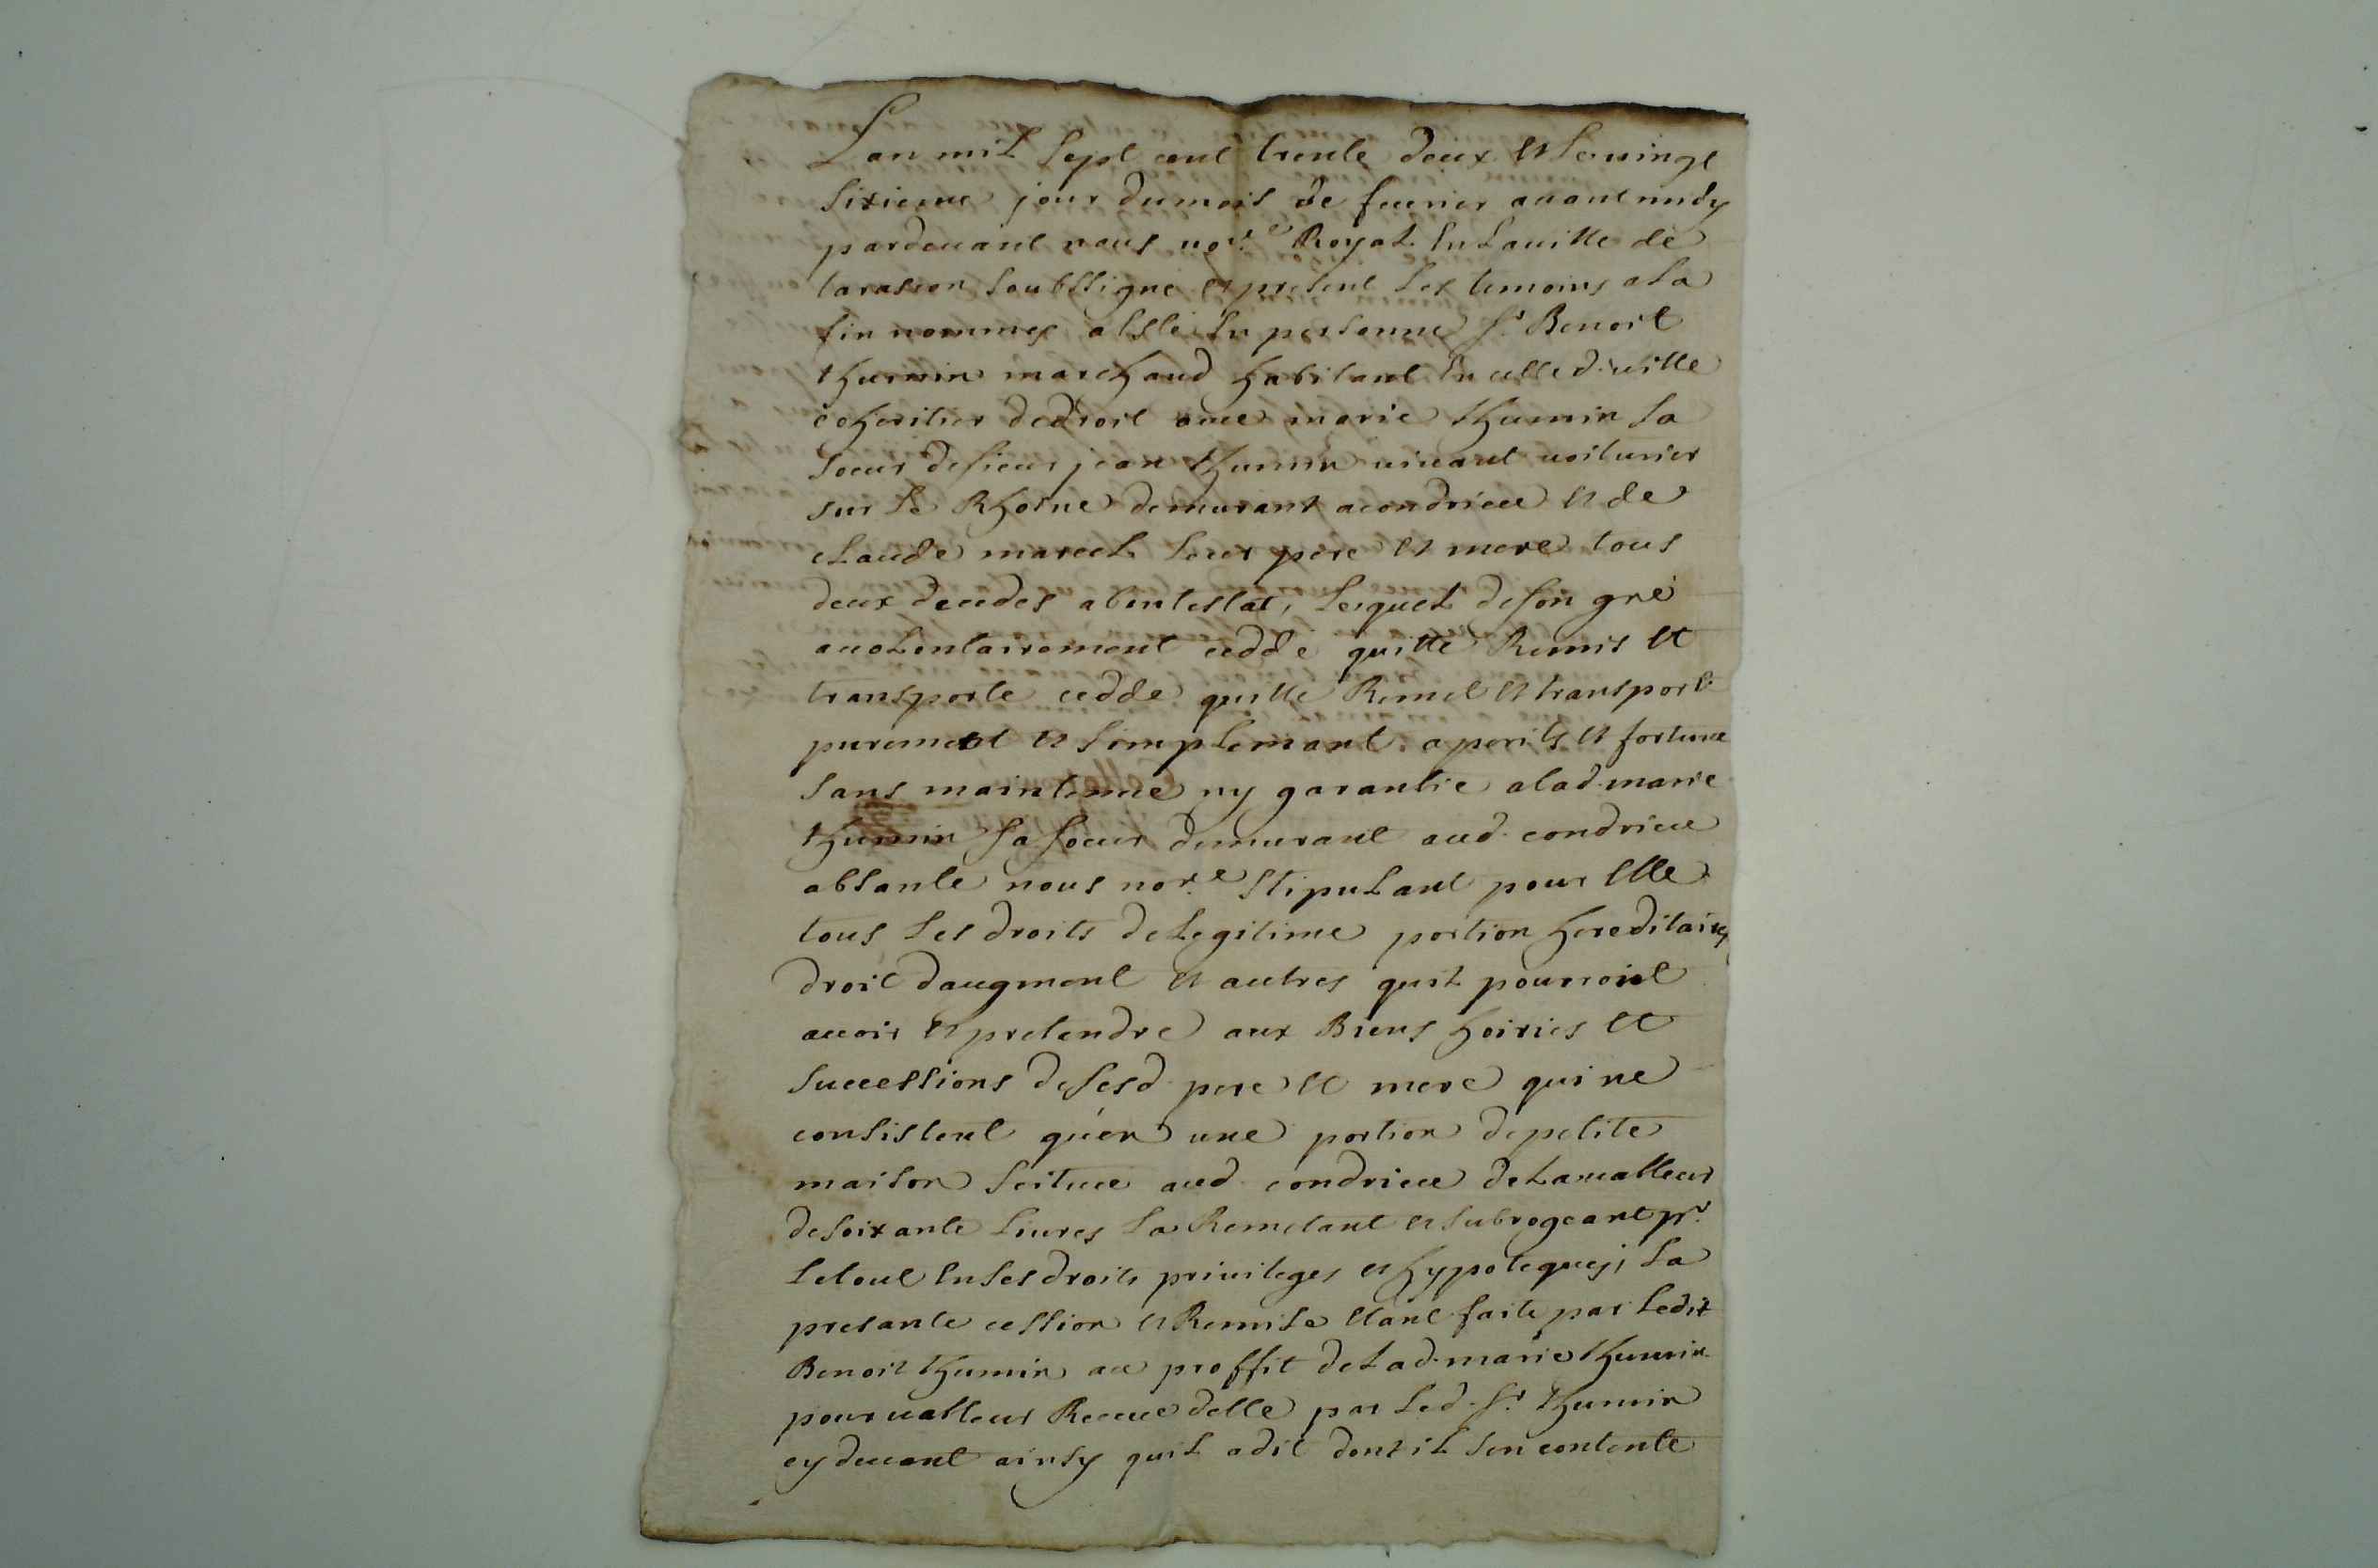 Lan mil sept cent trente deux et le vingt
sixieme jour du mois de fevrier avant midy
pardevant nous no.re Royal en la ville de
tarascon soubssigné et present les temoins a la
fin nommes a esté en personne s.r Benoit
thumin marchand habitant en cette d. ville
coheritier de droit avec marie thumin sa
soeur de sieur jean thumin vivant voiturier
sur le Rhosne demurant a condrieu et de
claude marcel leur pere et mere tous
deux decedes abintestat, lequel de son gré
a volontairement ceddé quitté Remis et
transporté cedde quitte Remet et transporte
purement et simplemant a perils et fortune
sans maintenue ny garantie a lad. marie
thumin sa soeur demurant aud. condrieu
absante nous nore. stipulant pour elle
tous les droits de legitime portion hereditaire
droit daugment et autres quil pourroint
avoir et pretendre aux Biens hoiries et
successions de sesd. pere et mere qui ne
consistent qu'en une portion de petite
maison scituee aud. condrieu de la valleur
de soixante livres la Remetant et subrogeant pr.
le tout en ses droits privileges et hypoteques, la
presante cession et Remise etant faite par ledit
Benoit thumin au proffit de lad. marie thumin
pour valleur Receue delle par led. s.r thumin
cy devant ainsy quil a dit dont il sen contente